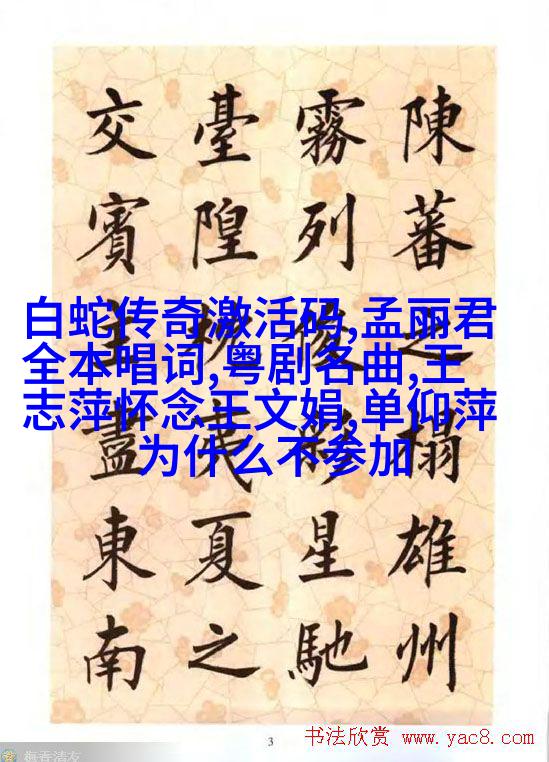 陳蕃之榻雄州
霧列俊彩星馳
臺隍枕夷夏之
交賓主盡東南
白蛇传奇激活码,孟丽君
全本唱词,粤剧名曲,王
志萍怀念王文娟,单仰萍
为什么不参加
3
书法欣赏 www.yac8.com